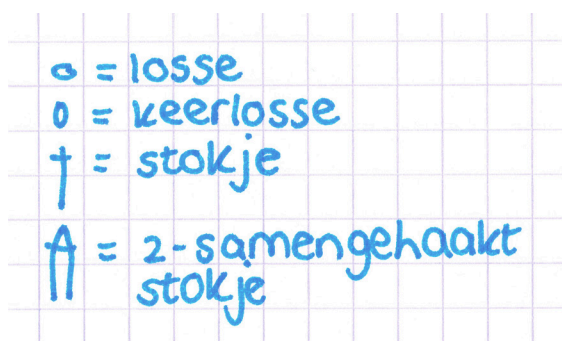 o = losse
0 = keerlosse
† = stokje
A = 2-samengehaakt
stokje